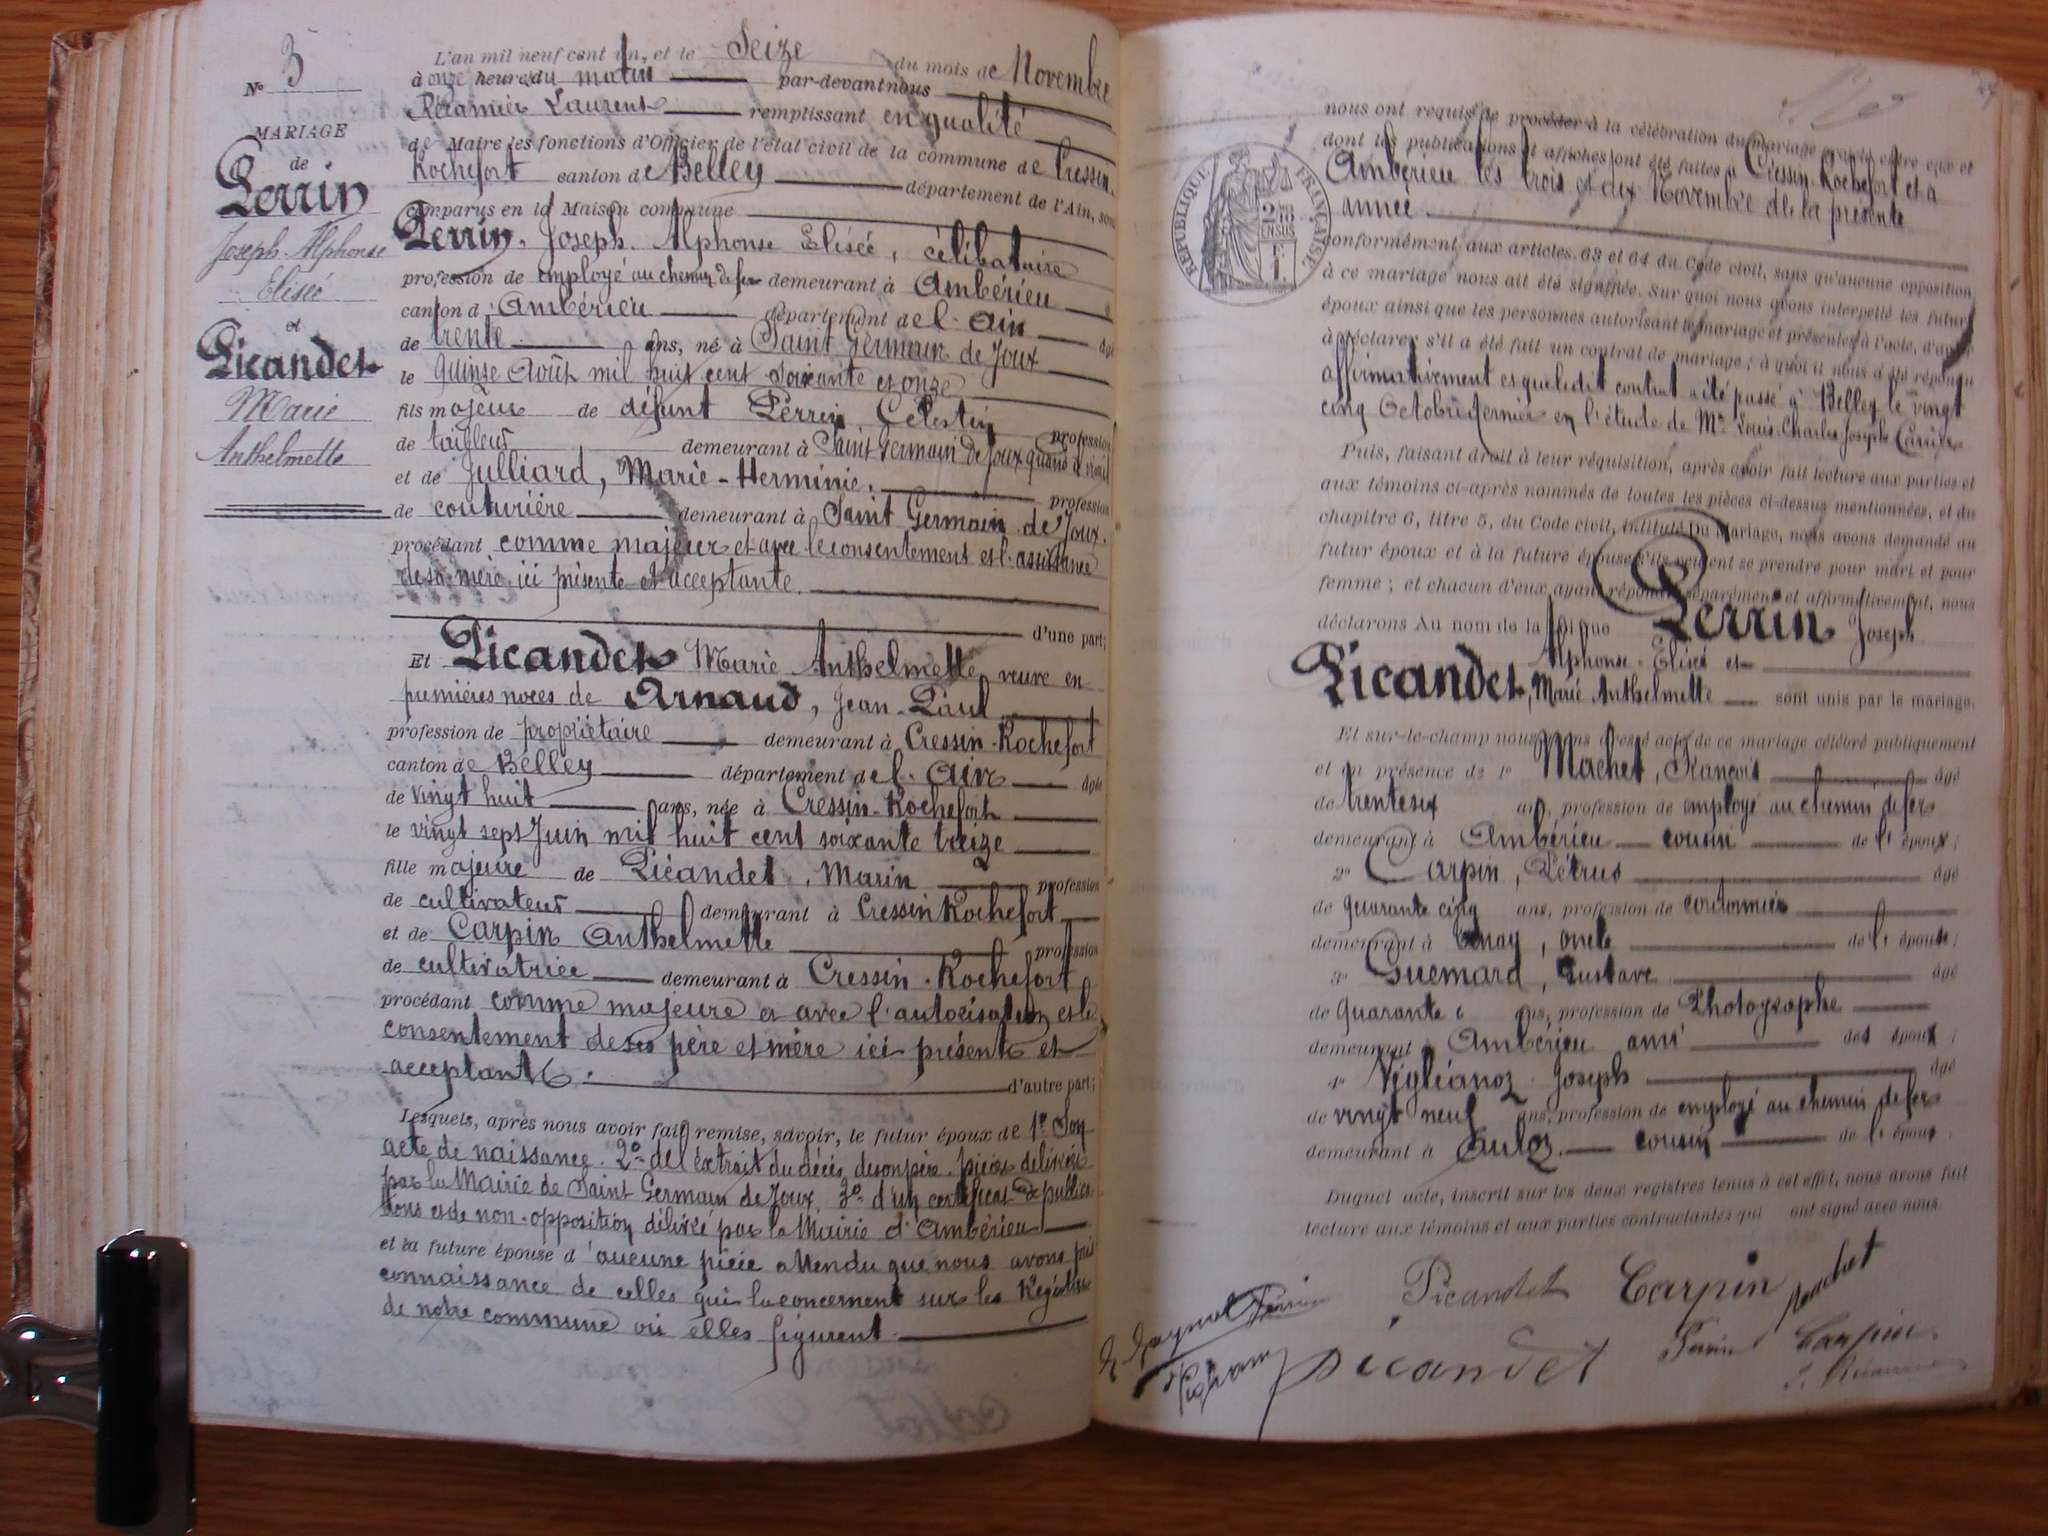 N° 3
MARIAGE
de
Perrin
Joseph-Alphonse
Elisée
et
Picandet
Marie
Anthelmette
L'an mil neuf cent un, et le Seize du mois de Novembre
à onze heure du matin par-devant nous
Récamier Laurent remplissant en qualité
de Maire les fonctions d'Officier de l'état civil de la commune de Cressin-
Rochefort canton de Belley département de l'Ain, sont
comparus en la Maison commune
Perrin, Joseph Alphonse Elisée, célibataire
profession de employé au chemin de fer demeurant à Ambérieu
canton d'Ambérieu département de l'Ain âgé
de trente ans, né à Saint Germain de Joux
le quinze Août mil huit cent soixante et onze
fils majeur de défunt Perrin Célestin profession
de tailleur demeurant à Saint Germain de Joux quand il vivait
et de Julliard, Marie-Herminie, profession
de couturière demeurant à Saint Germain de Joux.
procédant comme majeur et avec le consentement et l'assistance
de sa mère ici présente et acceptante.
d'une part;
Et Picandet Marie Anthelmette, veuve en
premières noces de Arnaud, Jean-Paul
profession de propriétaire demeurant à Cressin-Rochefort
canton de Belley département de l'Ain âgée
de vingt huit ans, née à Cressin-Rochefort
le vingt sept Juin mil huit cent soixante treize
fille majeure de Picandet, Marin profession
de cultivateur demeurant à Cressin Rochefort
et de Carpin Anthelmette profession
de cultivatrice demeurant à Cressin-Rochefort
procédant comme majeure et avec l'autorisation et le
consentement de ses père et mère ici présents et
acceptants.
d'autre part;
Lesquels, après nous avoir fait remise, savoir, le futur époux de 1° Son
acte de naissance. 2° de l'extrait du décès de son père, pièces délivrées
par la Mairie de Saint Germain de Joux, 3° d'un certificat de publica
tions et de non-opposition délivré par la Mairie d'Ambérieu
et la future épouse d'aucune pièce attendu que nous avons pris
connaissance de celles qui la concernent sur les Registres
de notre commune où elles figurent.
nous ont requis de procéder à la célébration du mariage projeté entre eux et
dont les publications et affiches ont été faites à Cressin-Rochefort et à
Ambérieu les trois et dix Novembre de la présente
année
RÉPUBLIQUE FRANÇAISE
conformément aux articles 63 et 64 du Code civil, sans qu'aucune opposition
à ce mariage nous ait été signifiée. Sur quoi nous avons interpellé les futurs
époux ainsi que les personnes autorisant le mariage et présentes à l'acte, d'avoir
à déclarer s'il a été fait un contrat de mariage; à quoi il nous a été répondu
affirmativement et que ledit contrat a été passé à Belley le vingt
cinq Octobre dernier en l'étude de Me Louis-Charles-Joseph Carrier
Puis, faisant droit à leur réquisition, après avoir fait lecture aux parties et
aux témoins ci-après nommés de toutes les pièces ci-dessus mentionnées, et du
chapitre 6, titre 5, du Code civil, intitulé Du Mariage, nous avons demandé au
futur époux et à la future épouse s'ils veulent se prendre pour mari et pour
femme; et chacun d'eux ayant répondu séparément et affirmativement, nous
déclarons Au nom de la loi que Perrin Joseph
Alphonse-Elisée et
Picandet, Marie Anthelmette sont unis par le mariage.
Et sur-le-champ nous avons dressé acte de ce mariage célébré publiquement
et en présence de 1° Machet, François âgé
de trente six ans, profession de employé au chemin de fer
demeurant à Ambérieu cousin de l' époux;
2° Carpin, Pétrus âgé
de quarante cinq ans, profession de cordonnier
demeurant à Tenay, oncle de l' épouse;
3° Guemard, Gustave âgé
de quarante ans, profession de Photographe
demeurant à Ambérieu ami des époux;
4° Viglianoz Joseph âgé
de vingt neuf ans, profession de employé au chemin de fer
demeurant à Culoz cousin de l' époux
Duquel acte, inscrit sur les deux registres tenus à cet effet, nous avons fait
lecture aux témoins et aux parties contractantes qui ont signé avec nous.
Picandet Carpin Machet
Picandet Perrin Carpin